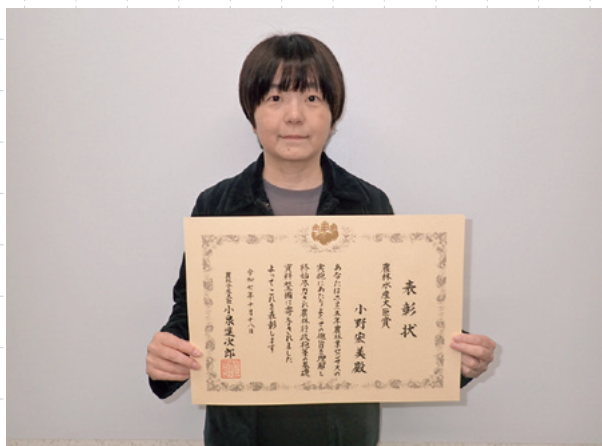 表彰状
農林水産大臣賞
小野宏美殿
あなたは二〇二五年農林業センサスの
実施にあたりよくその趣旨を理解し
終始尽力され農林行政施策の基礎
資料整備に寄与されました
よってこれを表彰します
令和七年十月十八日
農林水産大臣 小泉進次郎